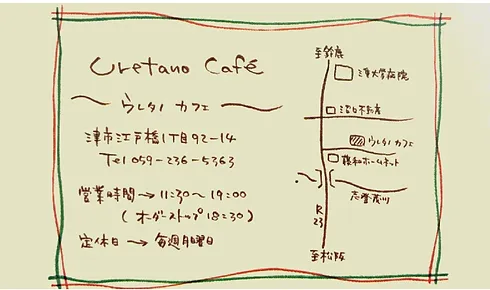 Uretano Café
〜 ウレタノ カフェ 〜
津市江戸橋1丁目92-14
Tel 059-236-5363
営業時間→11:30〜19:00
(オーダーストップ18:30)
定休日→毎週月曜日
至鈴鹿
三重大学病院
ウレタノカフェ
親和ホームネット
志登茂川
R23
至松阪